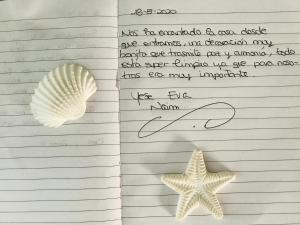 18-5-2020
Nos ha encantado la casa desde
que entramos, una decoración muy
bonita que trasmite paz y armonía, todo
esta super limpio ya que para noso-
tros era muy importante.
Yese Eva